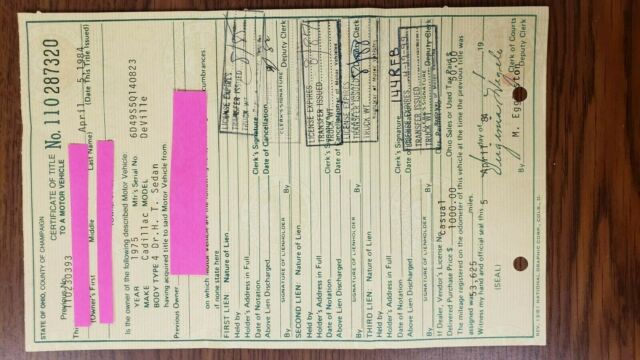 STATE OF OHIO, COUNTY OF CHAMPAIGN
CERTIFICATE OF TITLE
TO A MOTOR VEHICLE
No. 110287320
Previous No. 110230393
April 5, 1984
(Date This Title Issued)
(Owner's First Middle Last Name)
Is the owner of the following described Motor Vehicle
YEAR 1975 Mfr's Serial No 6D49S5Q140823
MAKE Cadillac MODEL DeVille
BODY TYPE 4 Dr.H. T. Sedan
having acquired title to said Motor Vehicle from
Previous Owner
on which
if none state here
FIRST LIEN: Nature of Lien
Held by
Holder's Address in Full
Date of Notation Clerk's Signature
Above Lien Discharged Date of Cancellation
By SIGNATURE OF LIENHOLDER By CLERK'S SIGNATURE Deputy Clerk
SECOND LIEN: Nature of Lien
Held by
Holder's Address in Full
Date of Notation
Above Lien Discharged
By SIGNATURE OF LIENHOLDER By Deputy Clerk
THIRD LIEN: Nature of Lien
Held by
Holder's Address in Full
Date of Notation Clerk's Signature
Above Lien Discharged
By SIGNATURE OF LIENHOLDER By Deputy Clerk
LICENSE EXPIRES
TRANSFER ISSUED
TRUCK WT.
LICENSE EXPIRES
TRANSFER ISSUED
TRUCK WT.
LICENSE EXPIRES
TRANSFER ISSUED
TRUCK WT.
If Dealer, Vendor's License No. casual Ohio Sales or Used Tax Paid $
Delivered Purchase Price $ 1000.00
The mileage registered on the odometer of this vehicle at the time the previous title was
assigned was 53,625 miles.
Witness my hand and official seal this 5 day of April 19 84
(SEAL)
Clerk of Courts
By M. Deputy Clerk
REV. 1/81 NATIONAL GRAPHIC CORP., COLS., O.